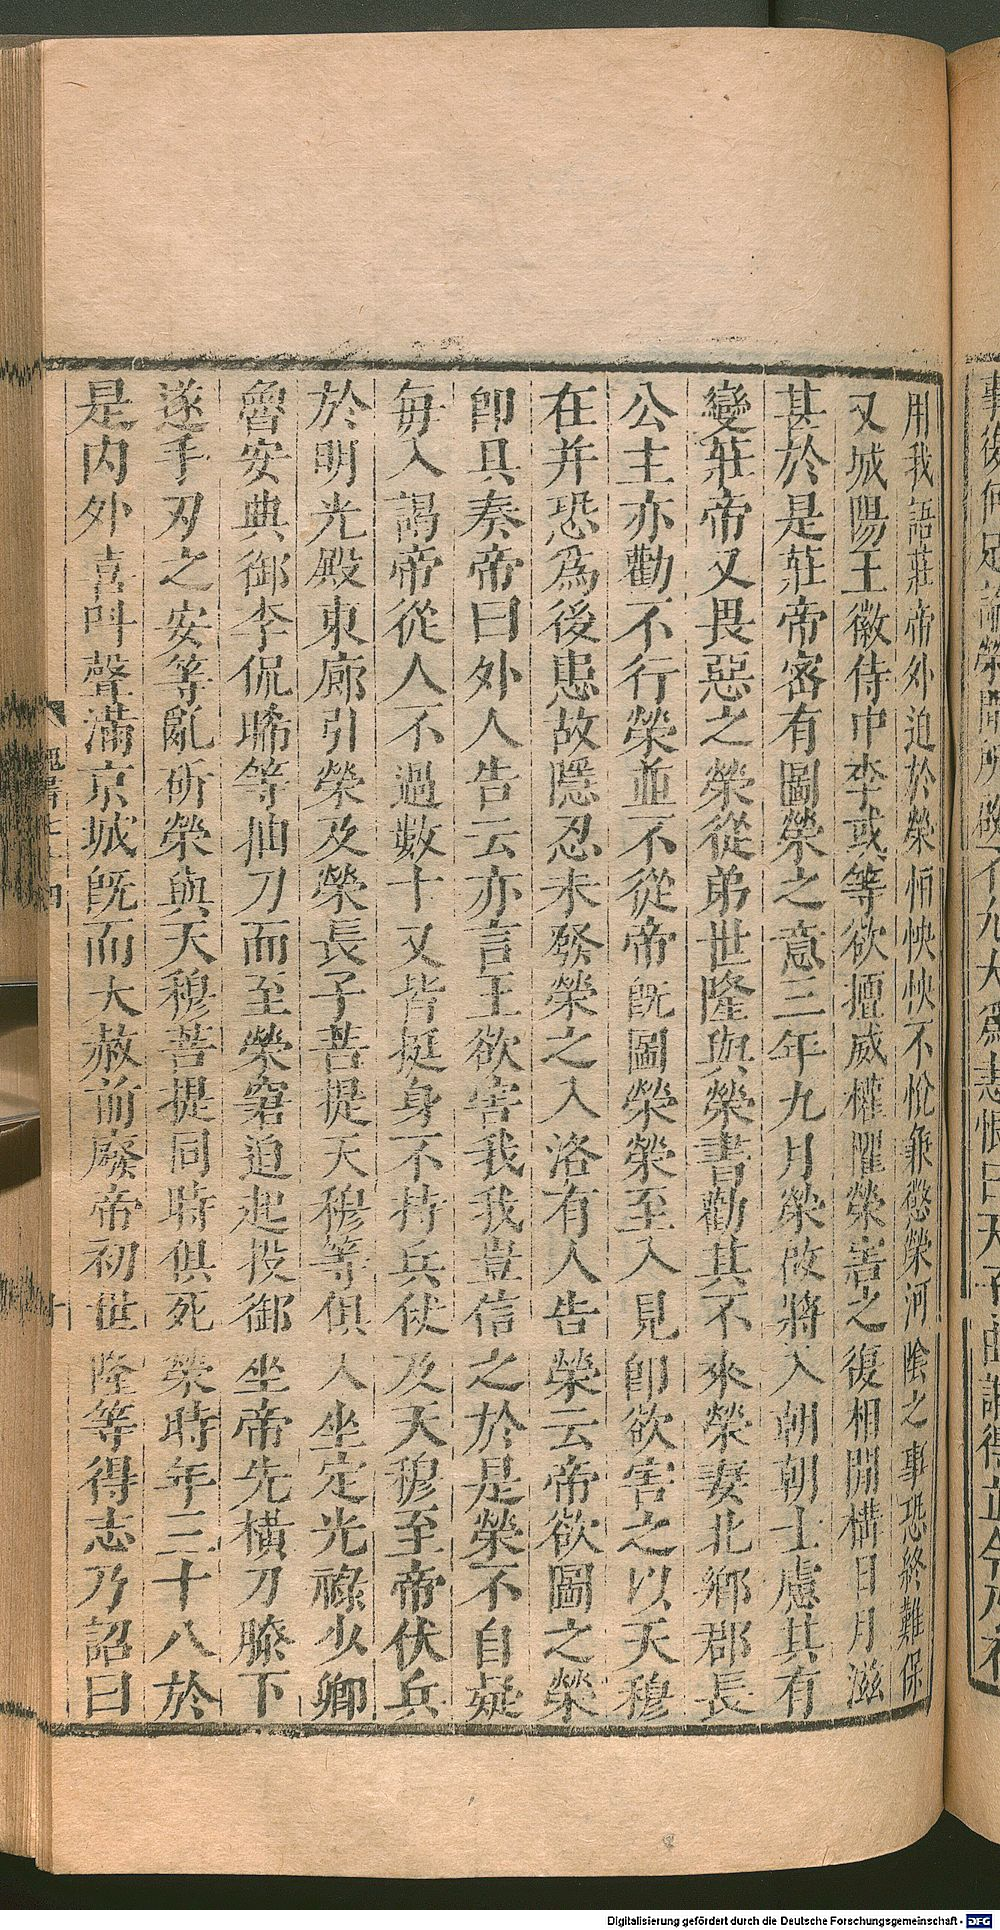 用我語莊帝外迫於榮恒怏怏不悅兼懲榮河隂之事恐終難保
又城陽王徽侍中李彧等欲擅威權懼榮害之復相間構日月滋
甚於是莊帝密有圖榮之意三年九月榮啟將入朝朝士慮其有
變莊帝又畏惡之榮從弟世隆與榮書勸其不來榮妻北鄉郡長
公主亦勸不行榮並不從帝既圖榮榮至入見即欲害之以天穆
在并恐為後患故隱忍未發榮之入洛有人告榮云帝欲圖之榮
即具奏帝曰外人告云亦言王欲害我我豈信之於是榮不自疑
每入謁帝從人不過數十又皆挺身不持兵仗及天穆至帝伏兵
於明光殿東廊引榮及榮長子菩提天穆等俱入坐定光祿少卿
魯安典御李侃晞等抽刀而至榮窘迫起投御坐帝先橫刀膝下
遂手刃之安等亂斫榮與天穆菩提同時俱死榮時年三十八於
是内外喜呌聲滿京城既而大赦前廢帝初世隆等得志乃詔曰
魏書七十四
十
Digitalisierung gefördert durch die Deutsche Forschungsgemeinschaft - DFG